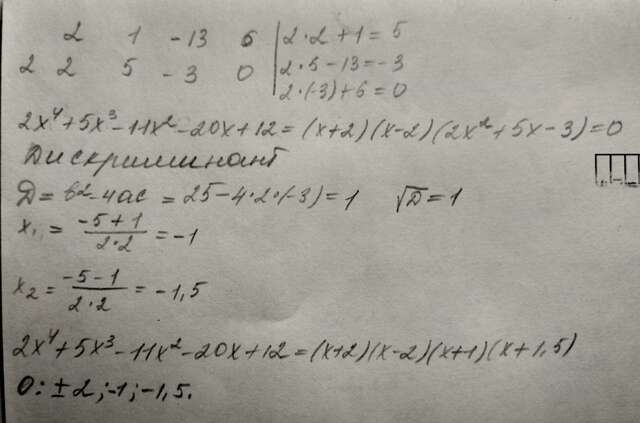 2 1 -13 6 | 2·2+1=5
2 2 5 -3 0 | 2·5-13=-3
2·(-3)+6=0
2x⁴+5x³-11x²-20x+12=(x+2)(x-2)(2x²+5x-3)=0
Дискриминант
D=b²-4ac=25-4·2·(-3)=1 √D=1
x₁ = (-5+1)/(2·2) = -1
x₂ = (-5-1)/(2·2) = -1,5
2x⁴+5x³-11x²-20x+12=(x+2)(x-2)(x+1)(x+1,5)
О: ±2;-1;-1,5.